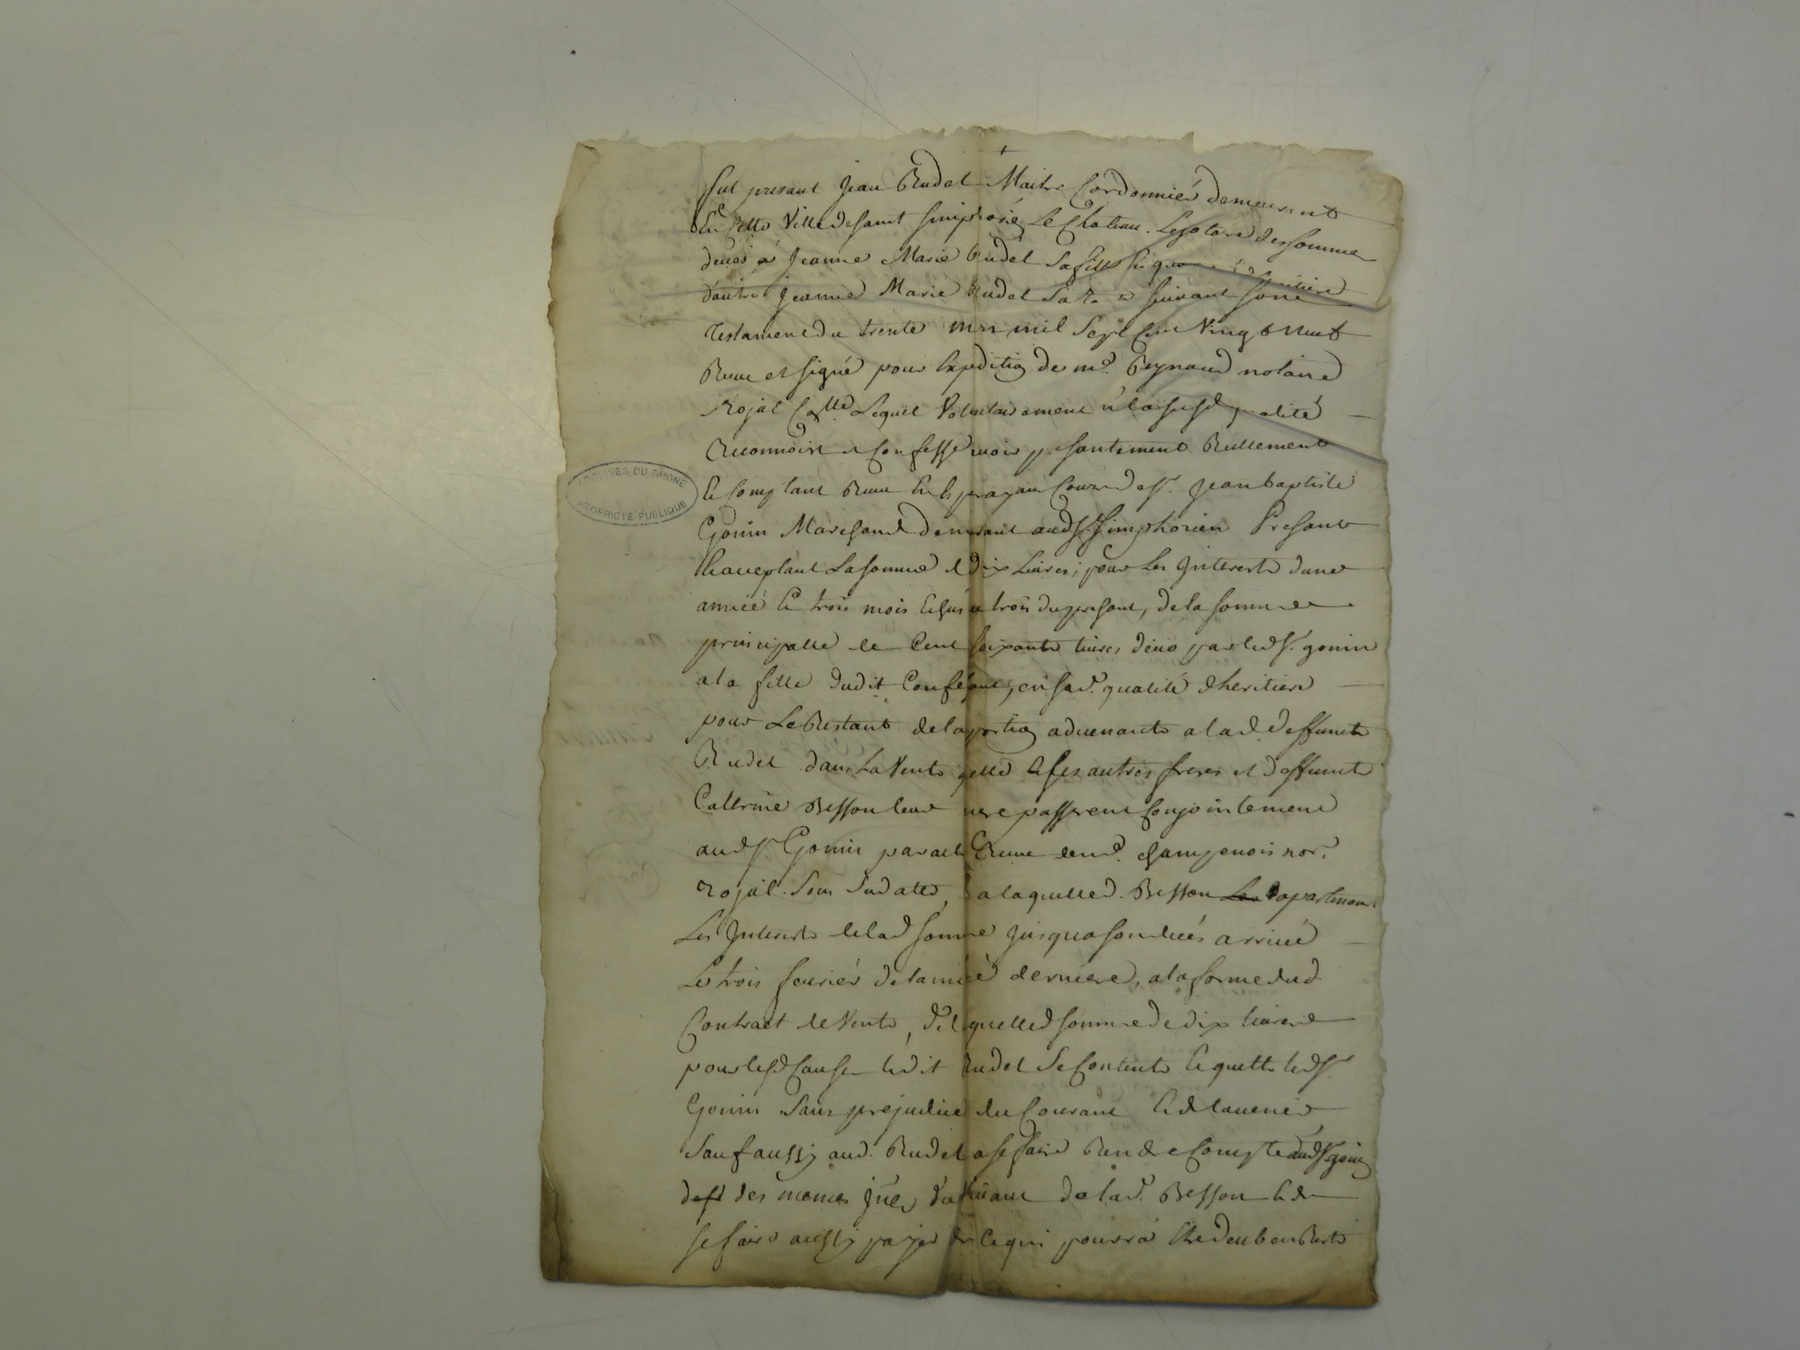 fut presant Jean Rudel Maitre Cordonnier demeurant
En cette Ville de saint simphorie Le Chateau. Legotaire des sommes
deues à Jeanne Marie Rudel Sa fille heritiere
d'autre Jeanne Marie Rudel Sa suivant sone
Testament du trente may mil Sept Cent Vingt neuf
Receu et signé pour Expeditiõ de me. Reynaud notaire
Royal Lequel Volontairement à la susd qualité
Reconnoist et Confesse avoir presantement Reellement
Et Comptant Receu sr. Jean baptiste
Gonin Marchand demeurant aud st simphorien Presant
Et acceptant La somme de dix Livres; pour Les Interests d'une
année Et trois mois Echus le trois du presant, de la somme
principalle de Cent soixante livres deue par led sr. gonin
a la fille dudit Confessant, en sa d. qualité d'heritiere
pour Le Restant de la portiõ advenante a la d deffunte
Rudel dans La Vente qelle & ses autres freres et deffunte
Catterine Besson leur mere passerent Conjointement
aud sr Gonin par acte Receu de me. champenois nore.
Royal Sous Sa datte, a laquelle d. Besson apartenoient
Les Interests de la d somme jusqua son decés arrivé
Le trois fevrier de lannée derniere, a la forme dud
Contract de Vente, de laquelle d somme de dix livres
pour lesd Causes ledit Rudel Se Contente Et quitte led sr.
Gonin Sans prejudice du Courant Et de lavenir
Sauf aussy aud. Rudel a se faire Rendre Compte aud sr goniñ
des mêmes de la d. Besson & de
se faire aussy payer de Ce qui pourra Etre deu
ARCHIVES DU RHONE
PROPRIÉTÉ PUBLIQUE